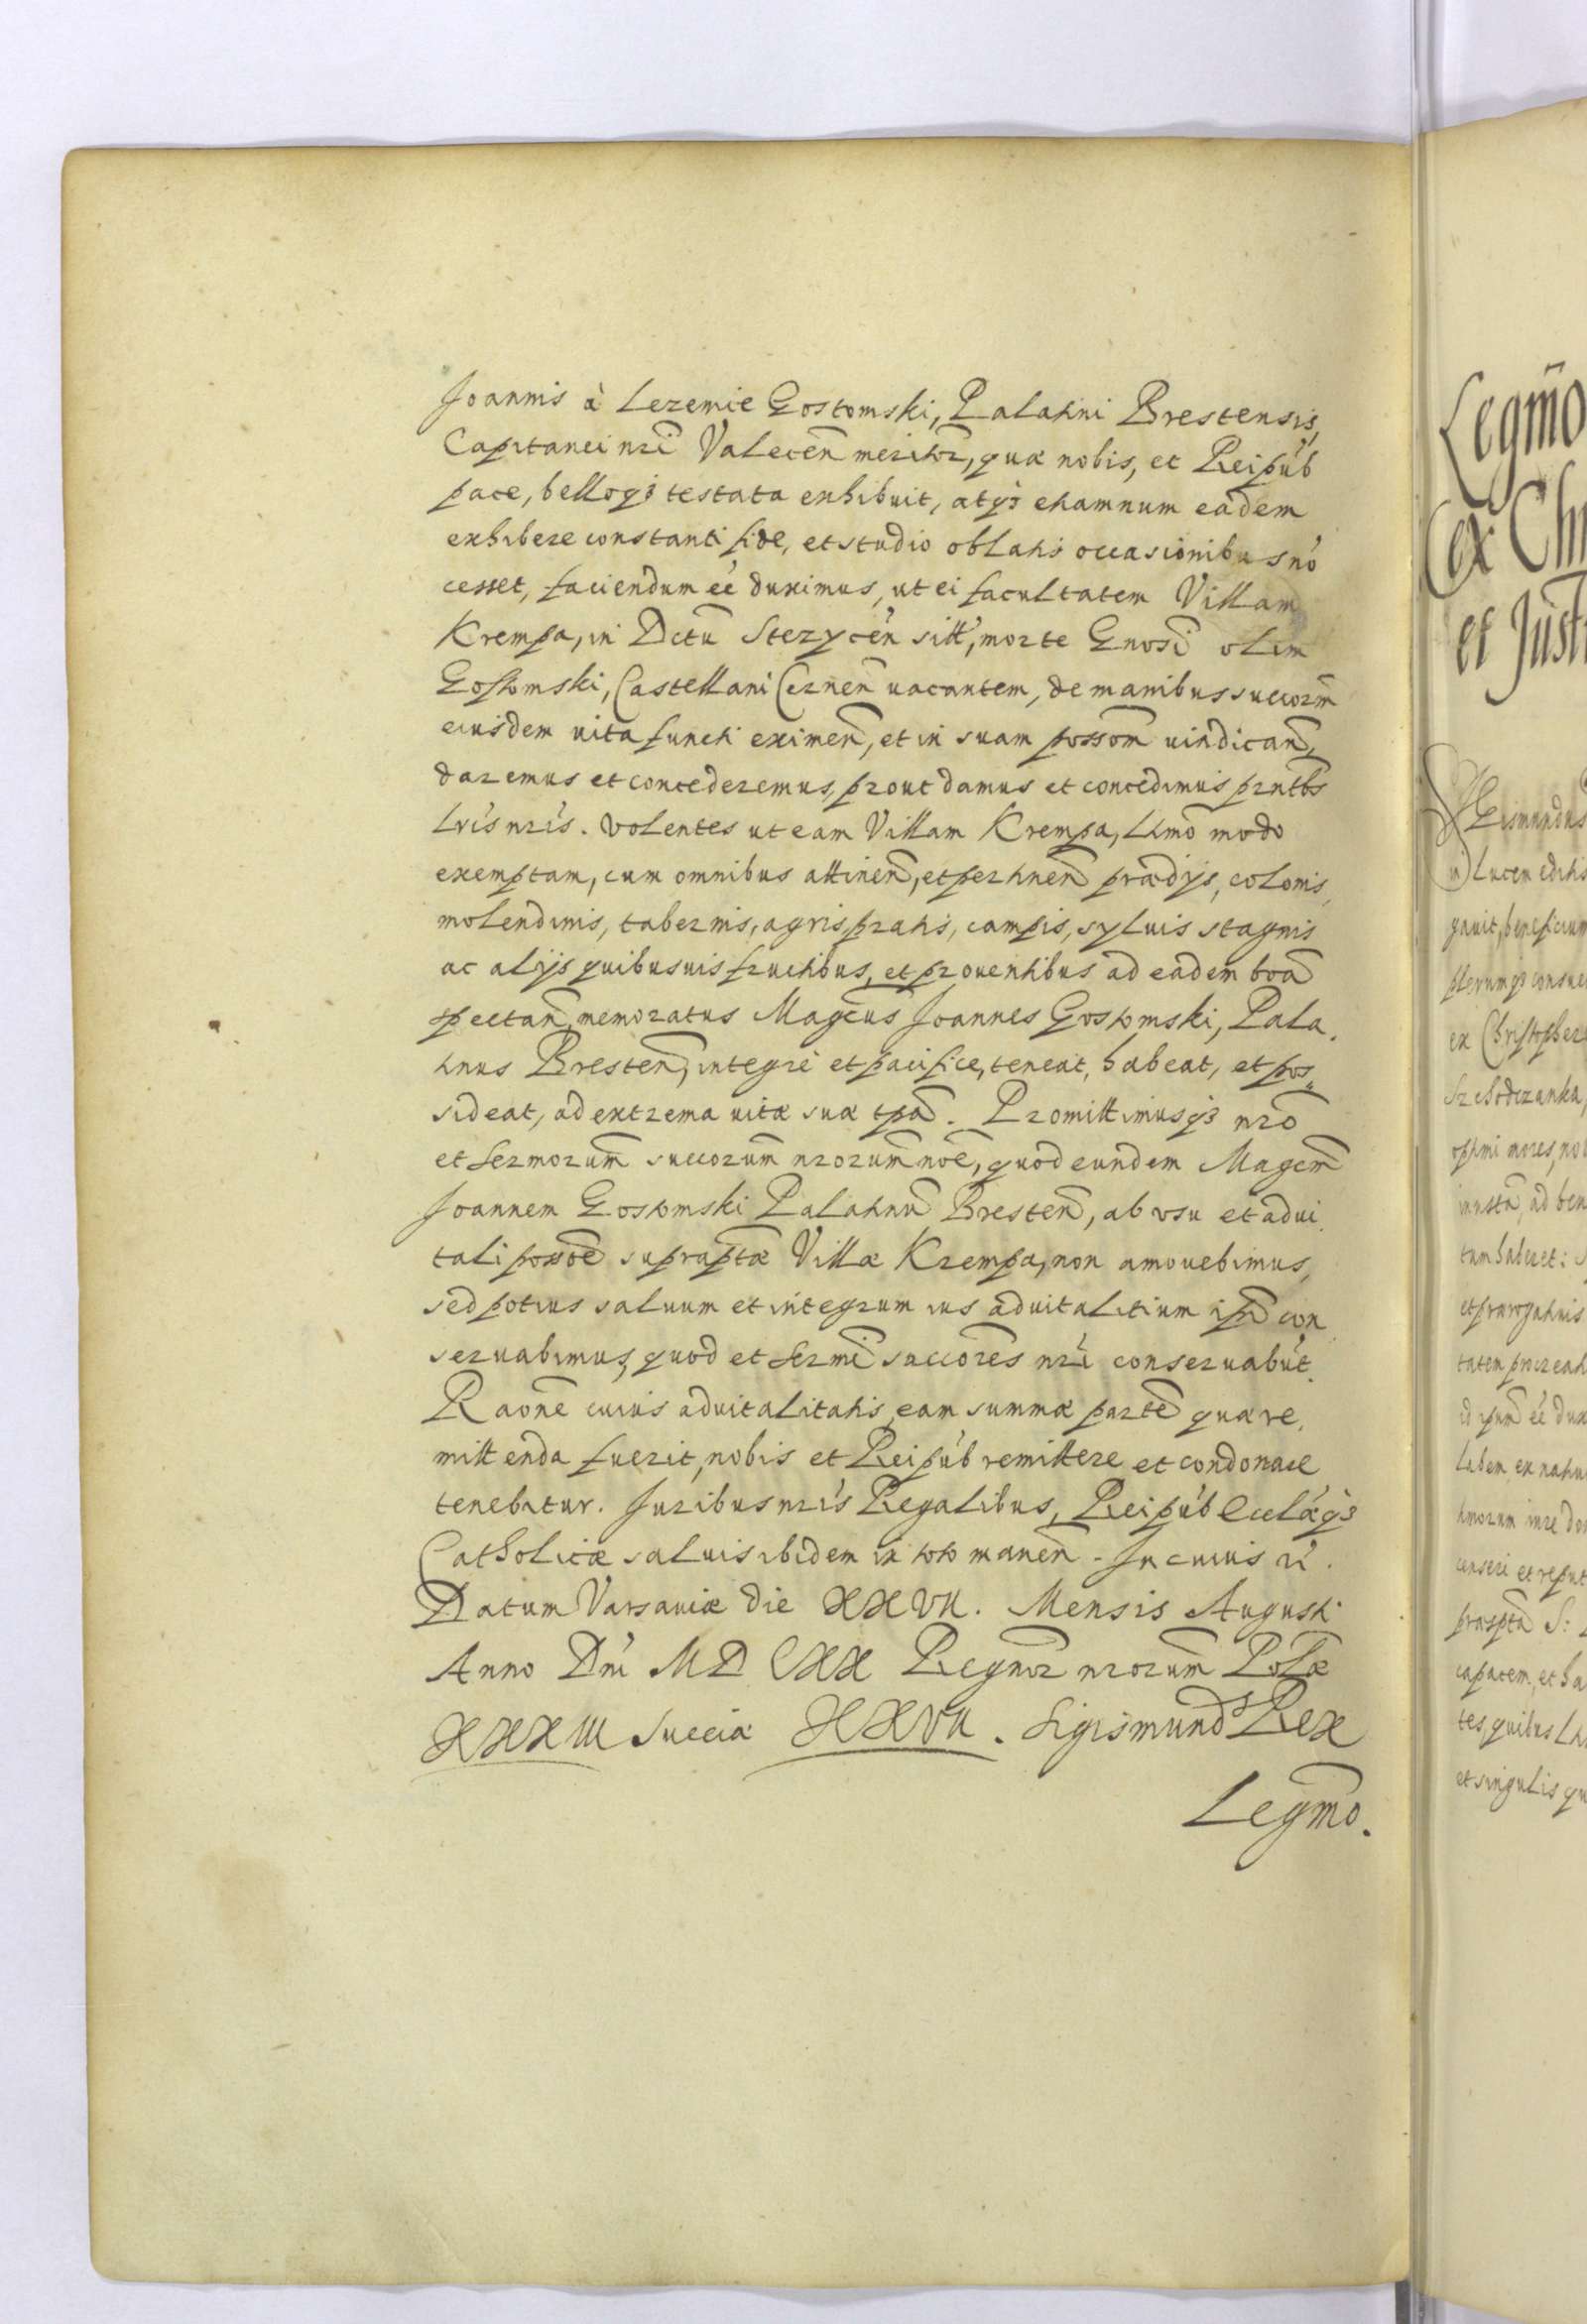 Joannis à Lezenice Gostomski, Palatini Brestensis,
Capitanei nri Valecen meritor, quæ nobis, et Reipub
pace, belloqз testata exhibuit, atqз etiamnum eadem
exhibere constanti fide, et studio oblatis occasionibus nō
cesset, faciendum eē duximus, ut ei facultatem Villam
Krempa, in Dctu Stezycen sitt, morte Gnosi olim
Gostomski, Castellani Cernen uacantem, de manibus succorm
eiusdem uita functi eximen, et in suam possom uindican,
daremus et concederemus, prout damus et concedimus prntbs
lris nris. Volentes ut eam Villam Krempa, ltimo modo
exemptam, cum omnibus attinen, et pertinen prædijs, colonis,
molendinis, tabernis, agris, pratis, campis, syluis stagnis
ac alijs quibusuis fructibus, et prouentibus ad eadem boa
spectan, memoratus Magcus Joannes Gostomski, Pala,
tinus Bresten, integre et pacifice, teneat, habeat, et pos„
sideat, ad extrema uitæ suæ tpa. Promittimusqз nro
et Sermorum succorum nrorum noe, quod eundem Magcm
Joannem Gostomski Palatinu Bresten, ab usu et adui,
tali possoe supraptæ Villæ Krempa, non amouebimus,
sed potius saluum et integrum ius aduitalitium ipi con
seruabimus, quod et Sermi succores nri conseruabut.
Raone cuius aduitalitatis, eam summæ parte quæ re,
mittenda fuerit, nobis et Reipub remittere et condonare
tenebitur. Juribus nris Regalibus, Reipub Eclæqз
Catholicæ saluis ibidem in toto manen. In cuius rei.
Datum Varsauiæ die XXVII. Mensis Augusti
Anno Dni MDCXX Regnor nrorum Polæ
XXXIII Sueciæ XXVII. Sigismund9 Rex
Legmo.
Legmo
ex Ch
et Just
in lucem editis
gauit, beneficium
plerumqз consue
ex Christopher
optimi mores, no
tum haberet:
tatem procreat
et singulis qu